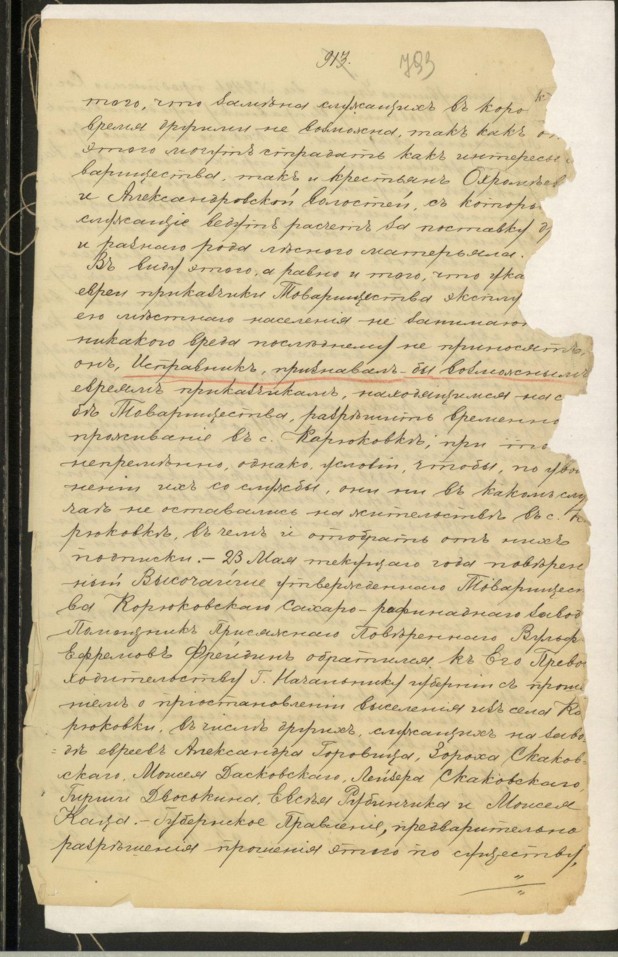 913.
793
того, что замѣна служащихъ въ коро
время другими не возможна, такъ какъ о
этого могутъ страдать какъ интересы
варищества, такъ и крестьянъ Охрамѣев
и Александровской волостей, съ котор
служащіе ведутъ расчетъ за поставку
и разнаго рода лѣсного матерьяла.
Въ виду этого, а равно и того, что ука
евреи прикащики Товарищества эксплу
его мѣстнаго населенія не занимаю
никакого вреда послѣднему не приносятъ,
онъ, Исправникъ, признавалъ-бы возможнымъ
евреямъ прикащикамъ, находящимся на с
бѣ Товарищества, разрѣшить временно
проживаніе въ с. Карюковкѣ, при то
непремѣнно, однако, условіи, чтобы, по уво
неніи ихъ со службы, они ни въ какомъ слу
чаѣ не оставались на жительствѣ въ с. К
рюковкѣ, въ чемъ и отобрать отъ нихъ
подписки.- 23 Мая текущаго года повѣрен
ный Высочайше утвержденнаго Товарищест
ва Корюковскаго Сахаро-рафинаднаго завод
Помощникъ Присяжнаго Повѣреннаго Вульф
Ефремовъ Фрейдинъ обратился къ Его Прево
ходительству Г. Начальнику губерніи съ проше
ніемъ о пріостановленіи выселенія изъ села Ко
рюковки, въ числѣ другихъ, служащихъ на заво
дѣ евреевъ Александра Горовица, Зороха Скаков-
скаго, Моисея Дасковскаго, Лейзера Скаковскаго,
Гирши Двоськина, Евсѣя Рубинчика и Моисея
Каца.- Губернское Правленіе, предварительно
разрѣшенія прошенія этого по существу,